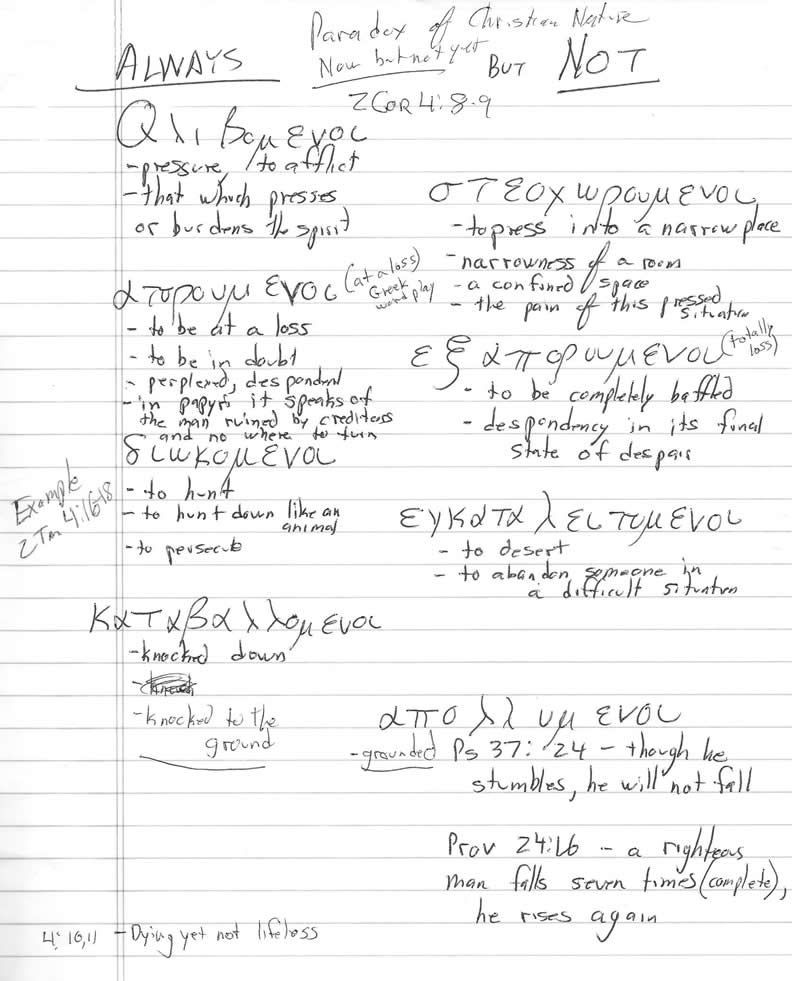 Paradox of Christian Nature
Now but not yet
ALWAYS BUT NOT
2 COR 4:8-9
θλιβομενοι
- pressure, to afflict
- that which presses
or burdens the spirit
στεοχωρουμενοι
- to press into a narrow place
- narrowness of a room
- a confined space
- the pain of this pressed
situation
απορουμενοι (at a loss)
Greek
word play
- to be at a loss
- to be in doubt
- perplexed, despondent
- in papyri it speaks of
the man ruined by creditors
and no where to turn
εξαπορουμενοι (totally
loss)
- to be completely baffled
- despondency in its final
state of despair
διωκομενοι
Example
2 Tm 4:16-18
- to hunt
- to hunt down like an
animal
- to persecute
εγκαταλειπομενοι
- to desert
- to abandon someone in
a difficult situation
καταβαλλομενοι
- knocked down
- knocked to the
ground
απολλυμενοι
- grounded Ps 37:24 - though he
stumbles, he will not fall
Prov 24:16 - a righteous
man falls seven times (complete),
he rises again
4:10,11 - Dying yet not lifeloss